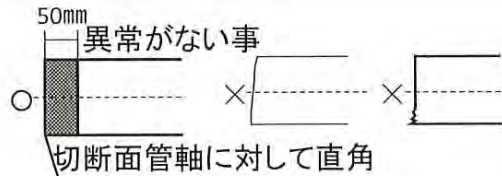 50mm
異常がない事
切断面管軸に対して直角